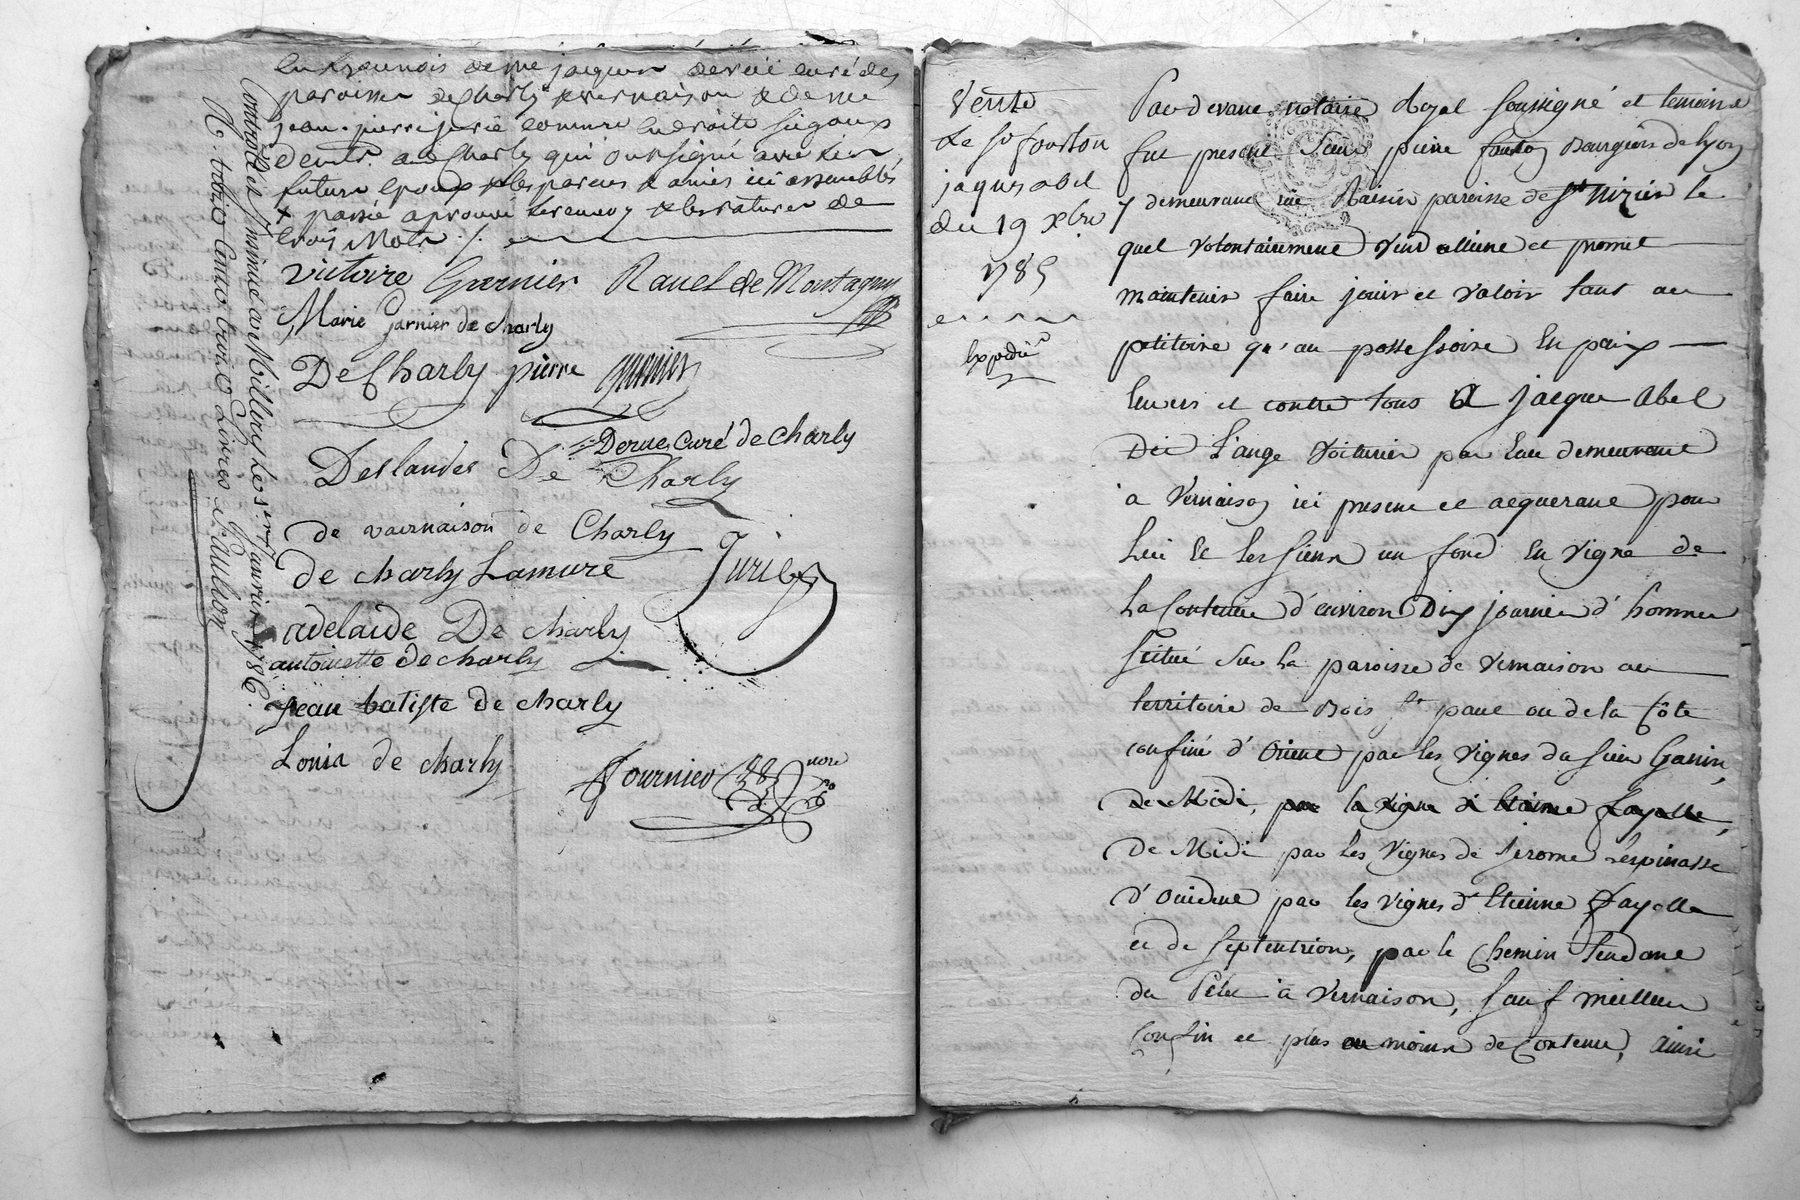 paroisses de Charly & vernaison & de me
jean-pierre jurie
devits au Charly qui ont signé avec les
futurs epoux & les parens & amis ici assemblés
+ passé aprouvé le renvoy & les ratures de
trois Mots ./.
victoire Garnier Ravel de Montagny
Marie Garnier de charly
De Charly pierre garnier
Derue Curé de Charly
Deslandes De Charly
de vaernaison de Charly
de charly Lamure Jurie
adelaide De charly
antoinette de charly
jean batiste de charly
Louis de charly
fournier nore
Controllé et Insinué a Millery Le janvier 1786.
R. Livres
vente
de Sr fourton
jaques abel
du 19 xbre
1785
Expedié
Pardevant notaire Royal soussigné et temoins
fut present Sieur pierre Bourgeois de lyon
y demeurant rue Raisin paroisse de St Nizier le
quel volontairement vend alliene et promet
maintenir faire jouir et valoir tant au
petitoire qu'au possessoire En paix
Envers et contre tous A jacque Abel
Dit L'ange voiturier par Eau demeurant
à Vernaison ici present et acquerant pour
Lui & les siens un fond En vigne de
La Contenue d'environ Dix journée d'hommes
scitué sur la paroisse de vernaison au
territoire de Bois St paul ou de la Côte
confiné d'Orient par les vignes du sieur Ganin,
de Midi, par la vigne d' Etienne fayolle,
De Midi par les vignes de jerome Lespinasse
d'occident par les vignes d'Etienne fayolle
et de septentrion, par le Chemin tendant
du à vernaison, sauf meilleur
Confin et plus ou moins de Contenue, ainsi